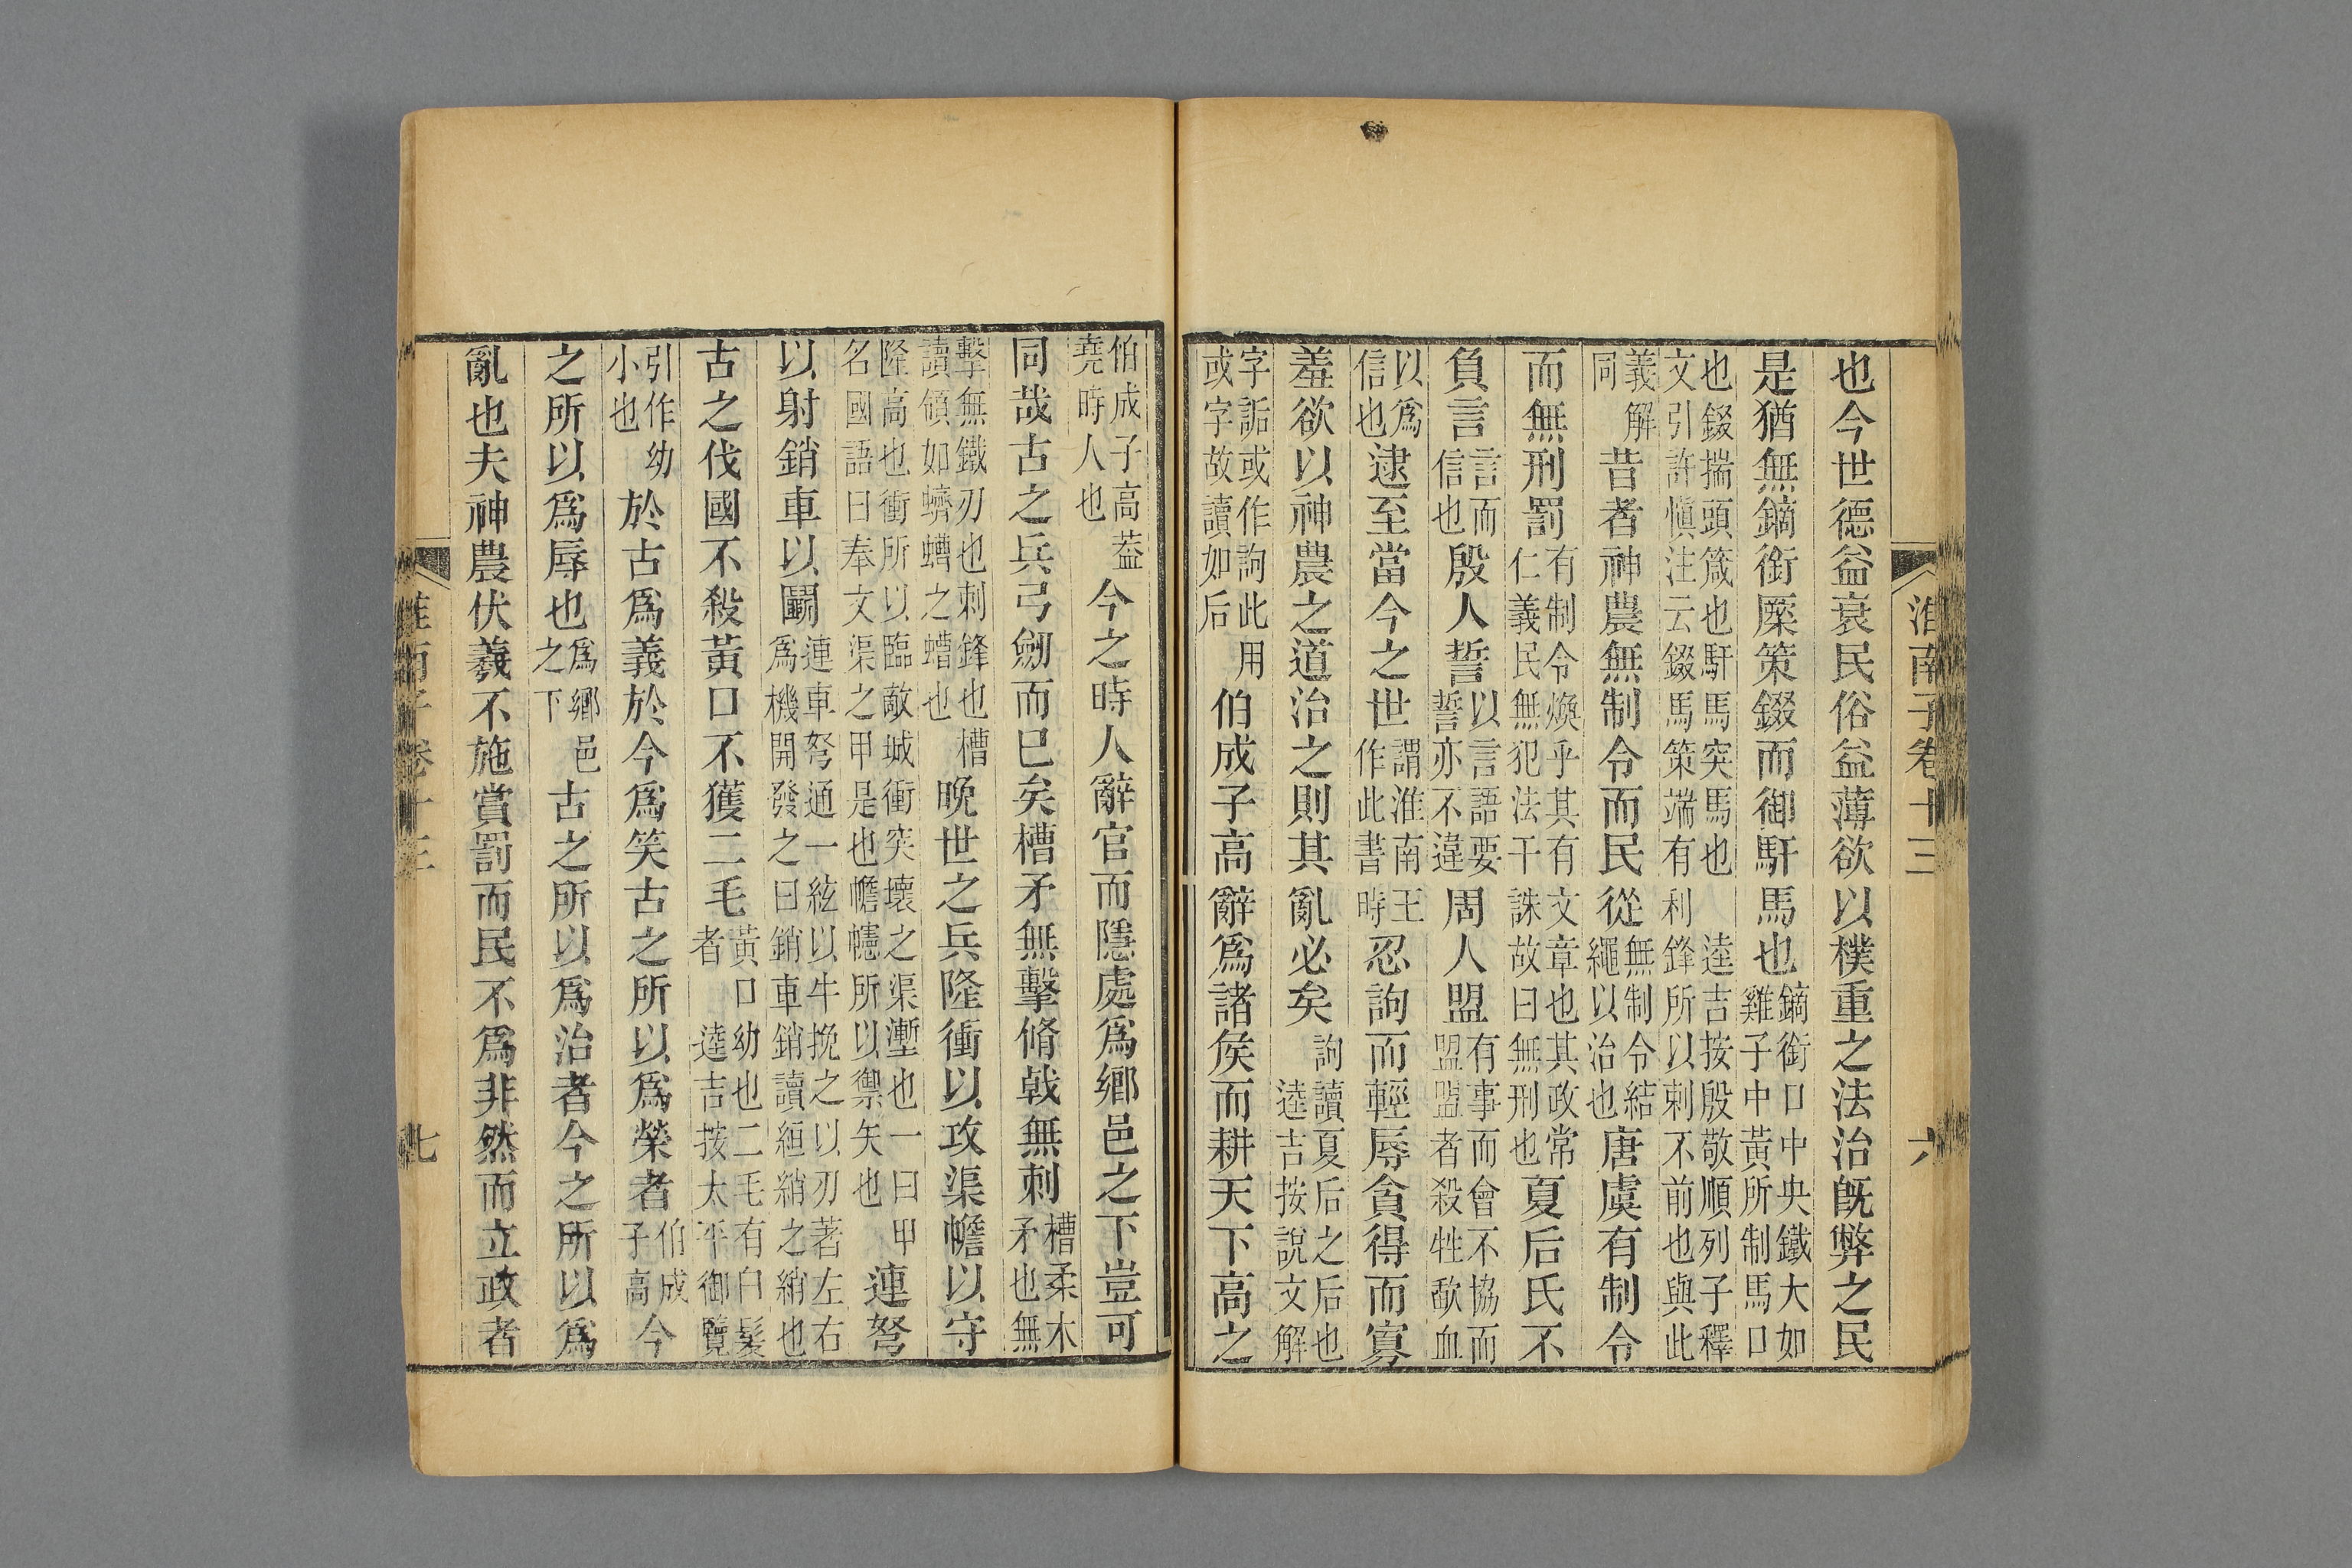 淮南子卷十三　六
也今世德益衰民俗益薄欲以樸重之法治旣弊之民
是猶無鏑銜橜策錣而御馯馬也鏑銜口中央鐵大如雞子中黃所制馬口
也錣揣頭箴也馯馬突馬也　逵吉按殷敬順列子釋文引許愼注云錣馬策端有利鋒所以刺不前也與此
義解同昔者神農無制令而民從無制令結繩以治也唐虞有制令
而無刑罰有制令煥乎其有文章也其政常仁義民無犯法干誅故曰無刑也夏后氏不
負言言而信也殷人誓以言語要誓亦不違周人盟有事而會不協而盟盟者殺牲歃血
以爲信也逮至當今之世謂淮南王作此書時忍訽而輕辱貪得而寡
羞欲以神農之道治之則其亂必矣訽讀夏后之后也　逵吉按說文解
字詬或作訽此用或字故讀如后伯成子高辭爲諸矦而耕天下高之
伯成子高葢堯時人也今之時人辭官而隱處爲鄉邑之下豈可
同哉古之兵弓劒而已矣槽矛無擊脩戟無刺槽柔木矛也無
擊無鐵刃也刺鋒也槽讀領如蠐螬之螬也晚世之兵隆衝以攻渠幨以守
隆高也衝所以臨敵城衝突壞之渠壍也一曰甲名國語曰奉文渠之甲是也幨幰所以禦矢也連弩
以射銷車以鬭連車弩通一絃以牛挽之以刃著左右爲機開發之曰銷車銷讀絙綃之綃也
古之伐國不殺黃口不獲二毛黃口幼也二毛有白髮者　逵吉按太平御覽
引作幼小也於古爲義於今爲笑古之所以爲榮者伯成子高今
之所以爲辱也爲鄉邑之下古之所以爲治者今之所以爲
亂也夫神農伏羲不施賞罰而民不爲非然而立政者
淮南子卷十三　七